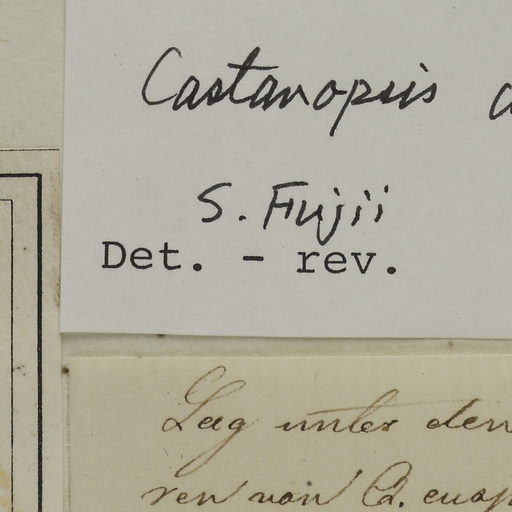 Castanopsis c
S. Fujii
Det. - rev.
Lag unter den
ren von Q. cusp